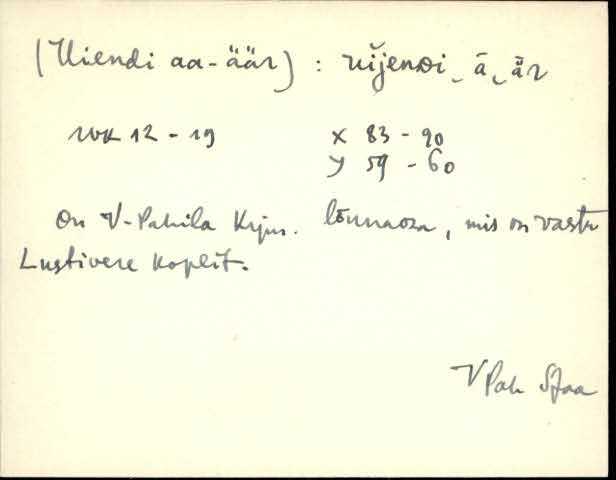 (Uiendi aa-äär) : uĭjenDi‿ā‿är
WK 12 - 19 x 83 - 90
y 59 - 60
On V-Pahila Krjm. lõunaosa, mis on vastu
Lustivere koplit.
V Pah SJaa